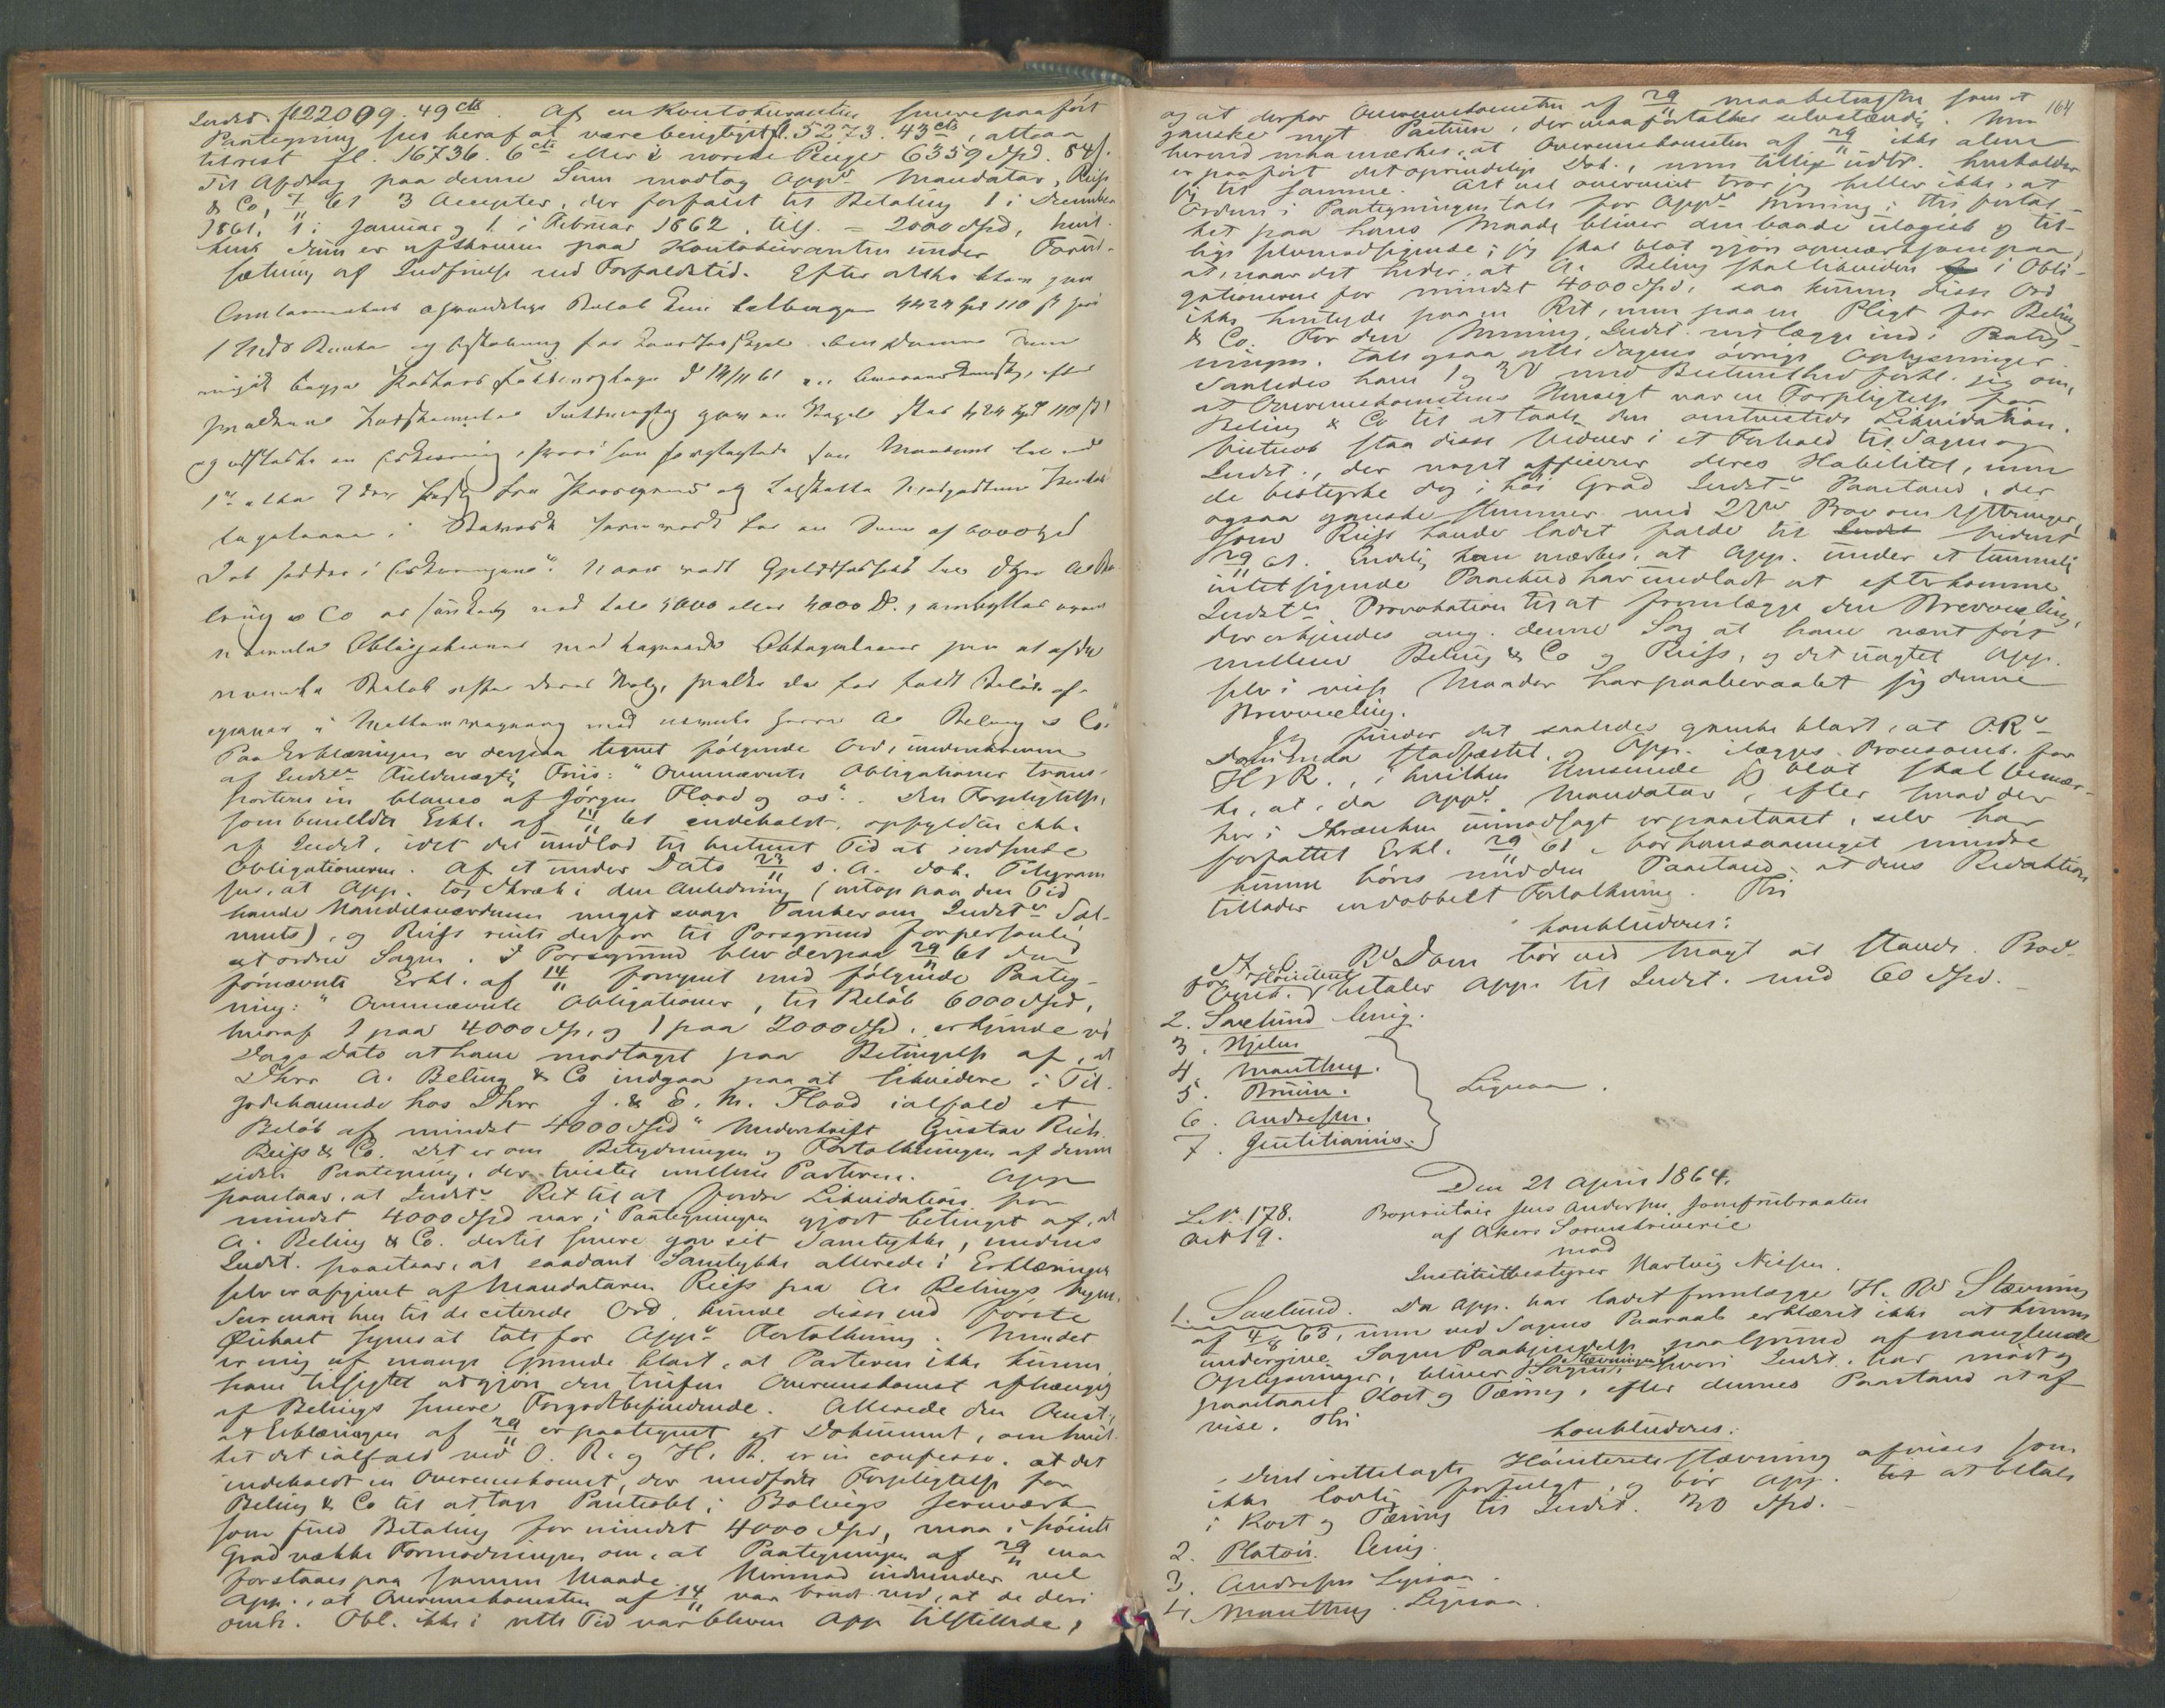 Indst. fl 22009. 49 cts. Af en Kontokurantens senere paaført
Paategning sees heraf at være berigtiget fl. 5273. 43 cts, altsaa
tilrest fl. 16736. 6 cts eller i norske Penge 6359 Spd. 84 s.
Til Afdrag paa denne Sum modtog Appts Mandatar, Reiss
& Co, 7/11 61 3 Accepter, der forfaldt til Betaling 1 i December
1861, 1 i Januar og 1 i Februar 1862, tils. = 2000 Spd, hvil-
ken Sum er afskreven paa Kontokuranten under Forud-
sætning af Indfrielse ved Forfaldstid. Efter
110 ß
og
1ste eller 2den Porsgrund og
for en Sum af 6000 Spd
Naar
& Co er 4000
Obligationer med
Beløb efter deres Valg,
med Herrer A. Beling & Co."
Paa Erklæringen er desforuden tegnet følgende Ord, underskrevne
af Indsts Fuldmægtig Friis: "Ovennævnte Obligationer trans-
porteres in blanco af Jørgen Flood og os". Den Forpligtelse,
som bemeldte Erkl. af 14/11 61 indeholdt, opfyldtes ikke
af Indst., idet det undlod til bestemt Tid at indsende
Obligationerne. Af et under Dato 23/11 s. A. dat. Telegram
sees, at App. tog Skræk i den Anledning (
havde Handelsverdenen meget svage Tanker om Indsts Sol-
vents), og Reiss reiste derfor til Porsgrund for personlig
at ordne Sagen. I Porsgrund blev derpaa 29/11 61 den
førnævnte Erkl. af 14/11 forsynet med følgende Paateg-
ning: "Ovennævnte Obligationer, til Beløb 6000 Spd,
hvoraf 1 paa 4000 Sp. og 1 paa 2000 Spd. erkjende vi
Dags Dato at have modtaget paa Betingelse af, at
Dhrr A. Beling & Co indgaa paa at likvidere i Til-
godehavende hos Dhrr J. & E. M. Flood ialfald et
Beløb af mindst 4000 Spd" Underskrift Gustav Rich.
Reiss & Co. Det er om Betydningen og Fortolkningen af denne
sidste Paategning, der tvistes mellem Parterne. App
paastaar, at Indsts Ret til at fordre Likvidation for
mindst 4000 Spd var i Paategningen gjort betinget af, at
A. Beling & Co. dertil senere gav sit Samtykke, medens
Indst. paastaar, at saadant Samtykke allerede i Erklæringen
selv er afgivet af Mandataren Reiss paa A. Belings Vegne.
Seer man hen til de citerede Ord, kunde disse ved første
Øiekast synes at tale for Appts Fortolkning. Imidlertid
er mig af mange Grunde klart, at Parterne ikke kunne
have tilsigtet at gjøre den trufne Overenskomst afhængig
af Belings senere Forgodtbefindende. Allerede den Omst.,
at Erklæringen af 29/11 er paategnet et Dokument, om hvil-
ket det ialfald ved O. R. og H. R. er in confesso, at det
indeholdt en Overenskomst, der medførte Forpligtelse for
Beling & Co til at tage Panteobl. i Bolvigs Jernværk
som fuld Betaling for mindst 4000 Spd, maa i høieste
Grad vække Formodningen om, at Paategningen af 29/11 maa
forstaaes paa samme Maade. Herimod indvender vel
App., at Overenskomsten af 14/11 var brudt ved, at de deri
omh. Obl. ikke i rette Tid var bleven App tilstillede,
164
og at derfor Overenskomsten af 29/11 maa betragtes som et
ganske nyt Factum, der maa fortolkes selvstændig. Men
herved maa mærkes, at Overenskomsten af 29/11 ikke alene
er paaført det oprindelige Dok., men tillige udtr. henholder
sig til samme. Alt vel overveiet tror jeg heller ikke, at
Ordene i Paategningen tale for Appts Mening; thi fortol-
ket paa hans Maade bliver den baade ulogisk og til-
lige selvmodsigende; jeg skal blot gjøre opmærksom paa,
at, naar det heder, at A. Beling skal likvidere i Obli-
gationerne for mindst 4000 Spd, saa kunne disse Ord
ikke hentyde paa en Ret, men paa en Pligt for Beling
& Co. For den Mening, Indst. vil lægge ind i Paateg-
ningen, tale ogsaa alle Sagens øvrige Oplysninger.
Saaledes have 1 og 2 V med Bestemthed forkl. sig om,
at Overenskomstens Hensigt var en Forpligtelse for
Beling & Co til at taale den omtvistede Likvidation.
Vistnok staa disse Vidner i et Forhold til Sagen og
Indst., der noget afficerer deres Habilitet, men
de bestyrke dog i høi Grad Indsts Paastand, der
ogsaa ganske stemmer med 2 V Prov om Yttringer,
som Reiss havde ladet falde til Vidnet
29/11 61. Endelig kan mærkes, at App. under et temmelig
intetsigende Paaskud har undladt at efterkomme
Indsts Provokation til at fremlægge den Brevvexling,
der erkjendes ang. denne Sag at have været ført
mellem Beling & Co og Reiss, og det uagtet App.
selv i visse Maader har paaberaabt sig denne
Brevvexling.
Jeg finder det saaledes ganske klart, at O.Rs
Dom maa stadfæstes, og App. ilægges Procesomk. for
H. R., i hvilken Henseende jeg blot skal bemær-
ke, at, da Appts Mandatar, efter hvad der
her i Skranken umodsagt er paastaaet, selv har
forfattet Erkl. 29/11 61, bør han saameget mindre
kunne høres med den Paastand, at dens Redaktion
tillader en dobbelt Fortolkning. Thi
konkluderes:
St. O. Rs Dom bør ved Magt at stande. Proc.
Omk. for Høiesteret betaler App. til Indst. med 60 Spd.
2. Saxlund Enig.
3. Hjelm
4. Manthey.
5. Bruun.
6. Andresen.
7. Justitiarius.
Ligesaa.
Den 21 April 1864.
L.N. 178.
Act 19.
Proprietair Jens Andersen Jomfrubraaten
af Akers Sorenskriverie
mod
Institutbestyrer Hartvig Nissen.
1. Saxlund. Da App. har ladet fremlægge H. Rs Stævning
af 4/8 63, men ved Sagens Paaraab erklæret ikke at kunne
undergive Sagen Paakjendelse paa Grund af manglende
Oplysninger, bliver Stævningen, hvori Indst. har mødt og
paastaaet Kost og Tæring, efter dennes Paastand at af-
vise. Thi
konkluderes:
Den irettelagte Høiesteretsstævning afvises som
ikke lovlig forfulgt, og bør App. at betale
i Kost og Tæring til Indst. 20 Spd.
2. Platou. Enig.
3. Andresen Ligesaa.
4. Manthey. Ligesaa.